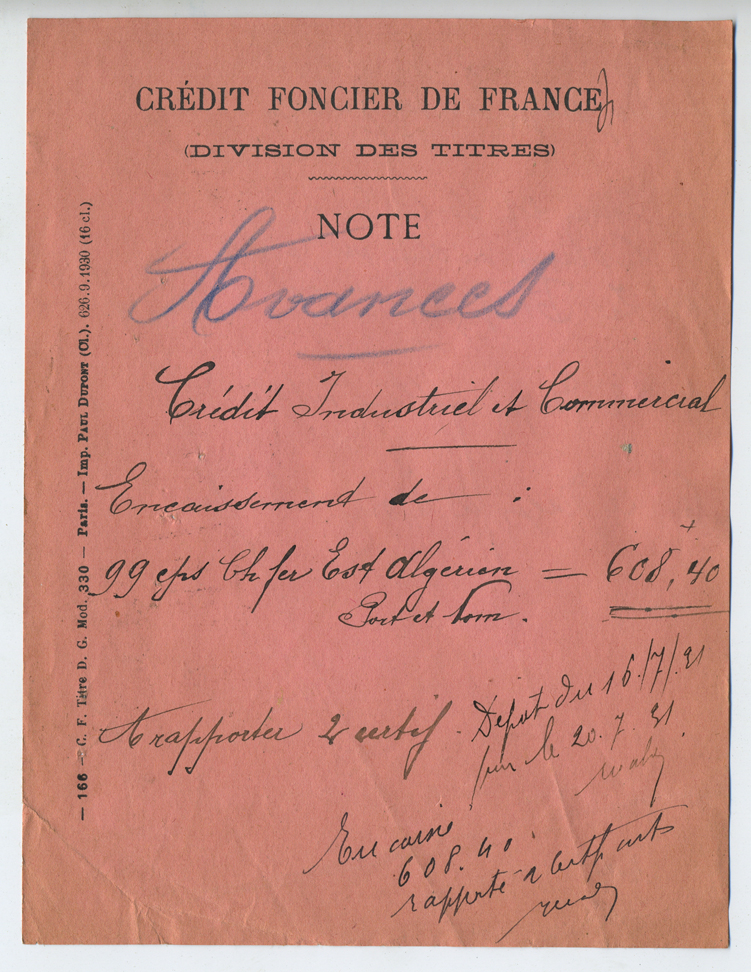 CRÉDIT FONCIER DE FRANCE
(DIVISION DES TITRES)
NOTE
Avances
Crédit Industriel et Commercial
Encaissement de :
99 cps Ch fer Est Algérien = 608,40
Port et Nom.
A rapporter 2 certif.
Dépôt du 16/7/31
pour le 20.7.31
Encaissé
608.40
rapporté 2 certif
— 166 — C. F. Titre D. G. Mod. 330 — Paris. — Imp. PAUL DUPONT (Cl.). 626.9.1930 (16 cl.)